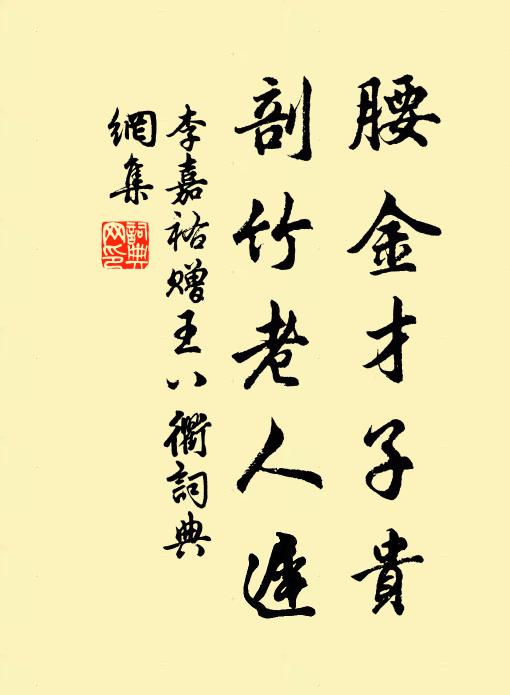 腰金才子貴
剖竹老人遲
李嘉祐贈王八衢詞典
網集
詞典網印